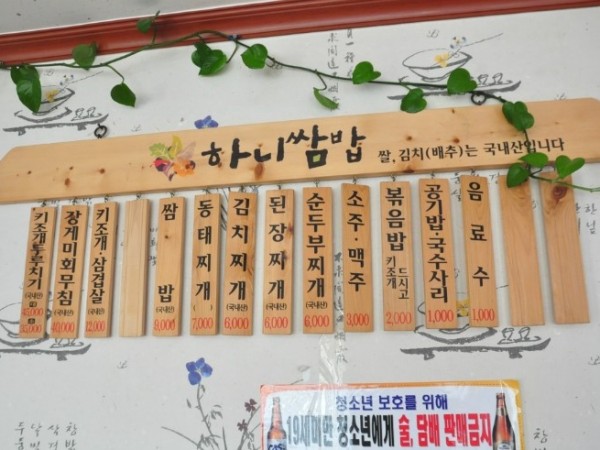 하니쌈밥 쌀,김치(배추)는 국내산입니다
키조개두루치기 (국내산) 대 45,000 소 35,000
장게미회무침 (국내산) 40,000
키조개·삼겹살 (국내산) 12,000
쌈밥 8,000
동태찌개 7,000
김치찌개 (국내산) 6,000
된장찌개 (국내산) 6,000
순두부찌개 (국내산) 6,000
소주·맥주 3,000
볶음밥 키조개 드시고 2,000
공기밥·국수사리 1,000
음료수 1,000
청소년 보호를 위해
19세미만 청소년에게 술, 담배 판매금지